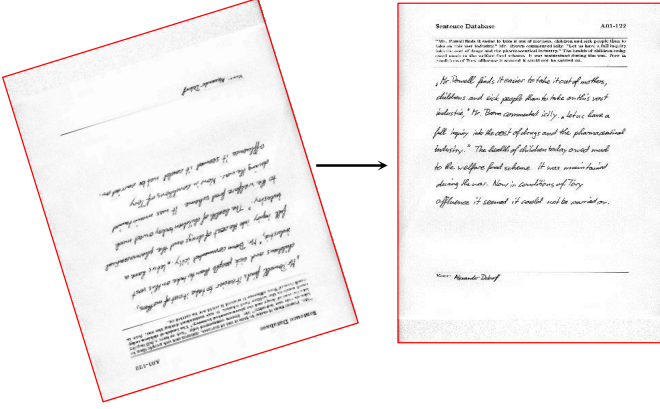 Sentence Database A01-122
"Mr. Powell finds it easier to take it out of mothers, children and sick people than to
take on this vast industry," Mr. Brown commented icily. "Let us have a full inquiry
into the cost of drugs and the pharmaceutical industry." The health of children today
owed much to the welfare food scheme. It was maintained during the war. Now in
conditions of Tory affluence it seemed it could not be carried on.
„Mr. Powell finds it easier to take it out of mothers,
childrens and sick people than to take on this vast
industrie," Mr. Brown commented icilly. „Let us have a
full inquiry into the cost of drugs and the pharmaceutical
industry." The health of children today owed much
to the welfare food scheme. It was maintained
during the war. Now in conditions of Tory
affluence it seemed it could not be carried on.
Name: Alexander